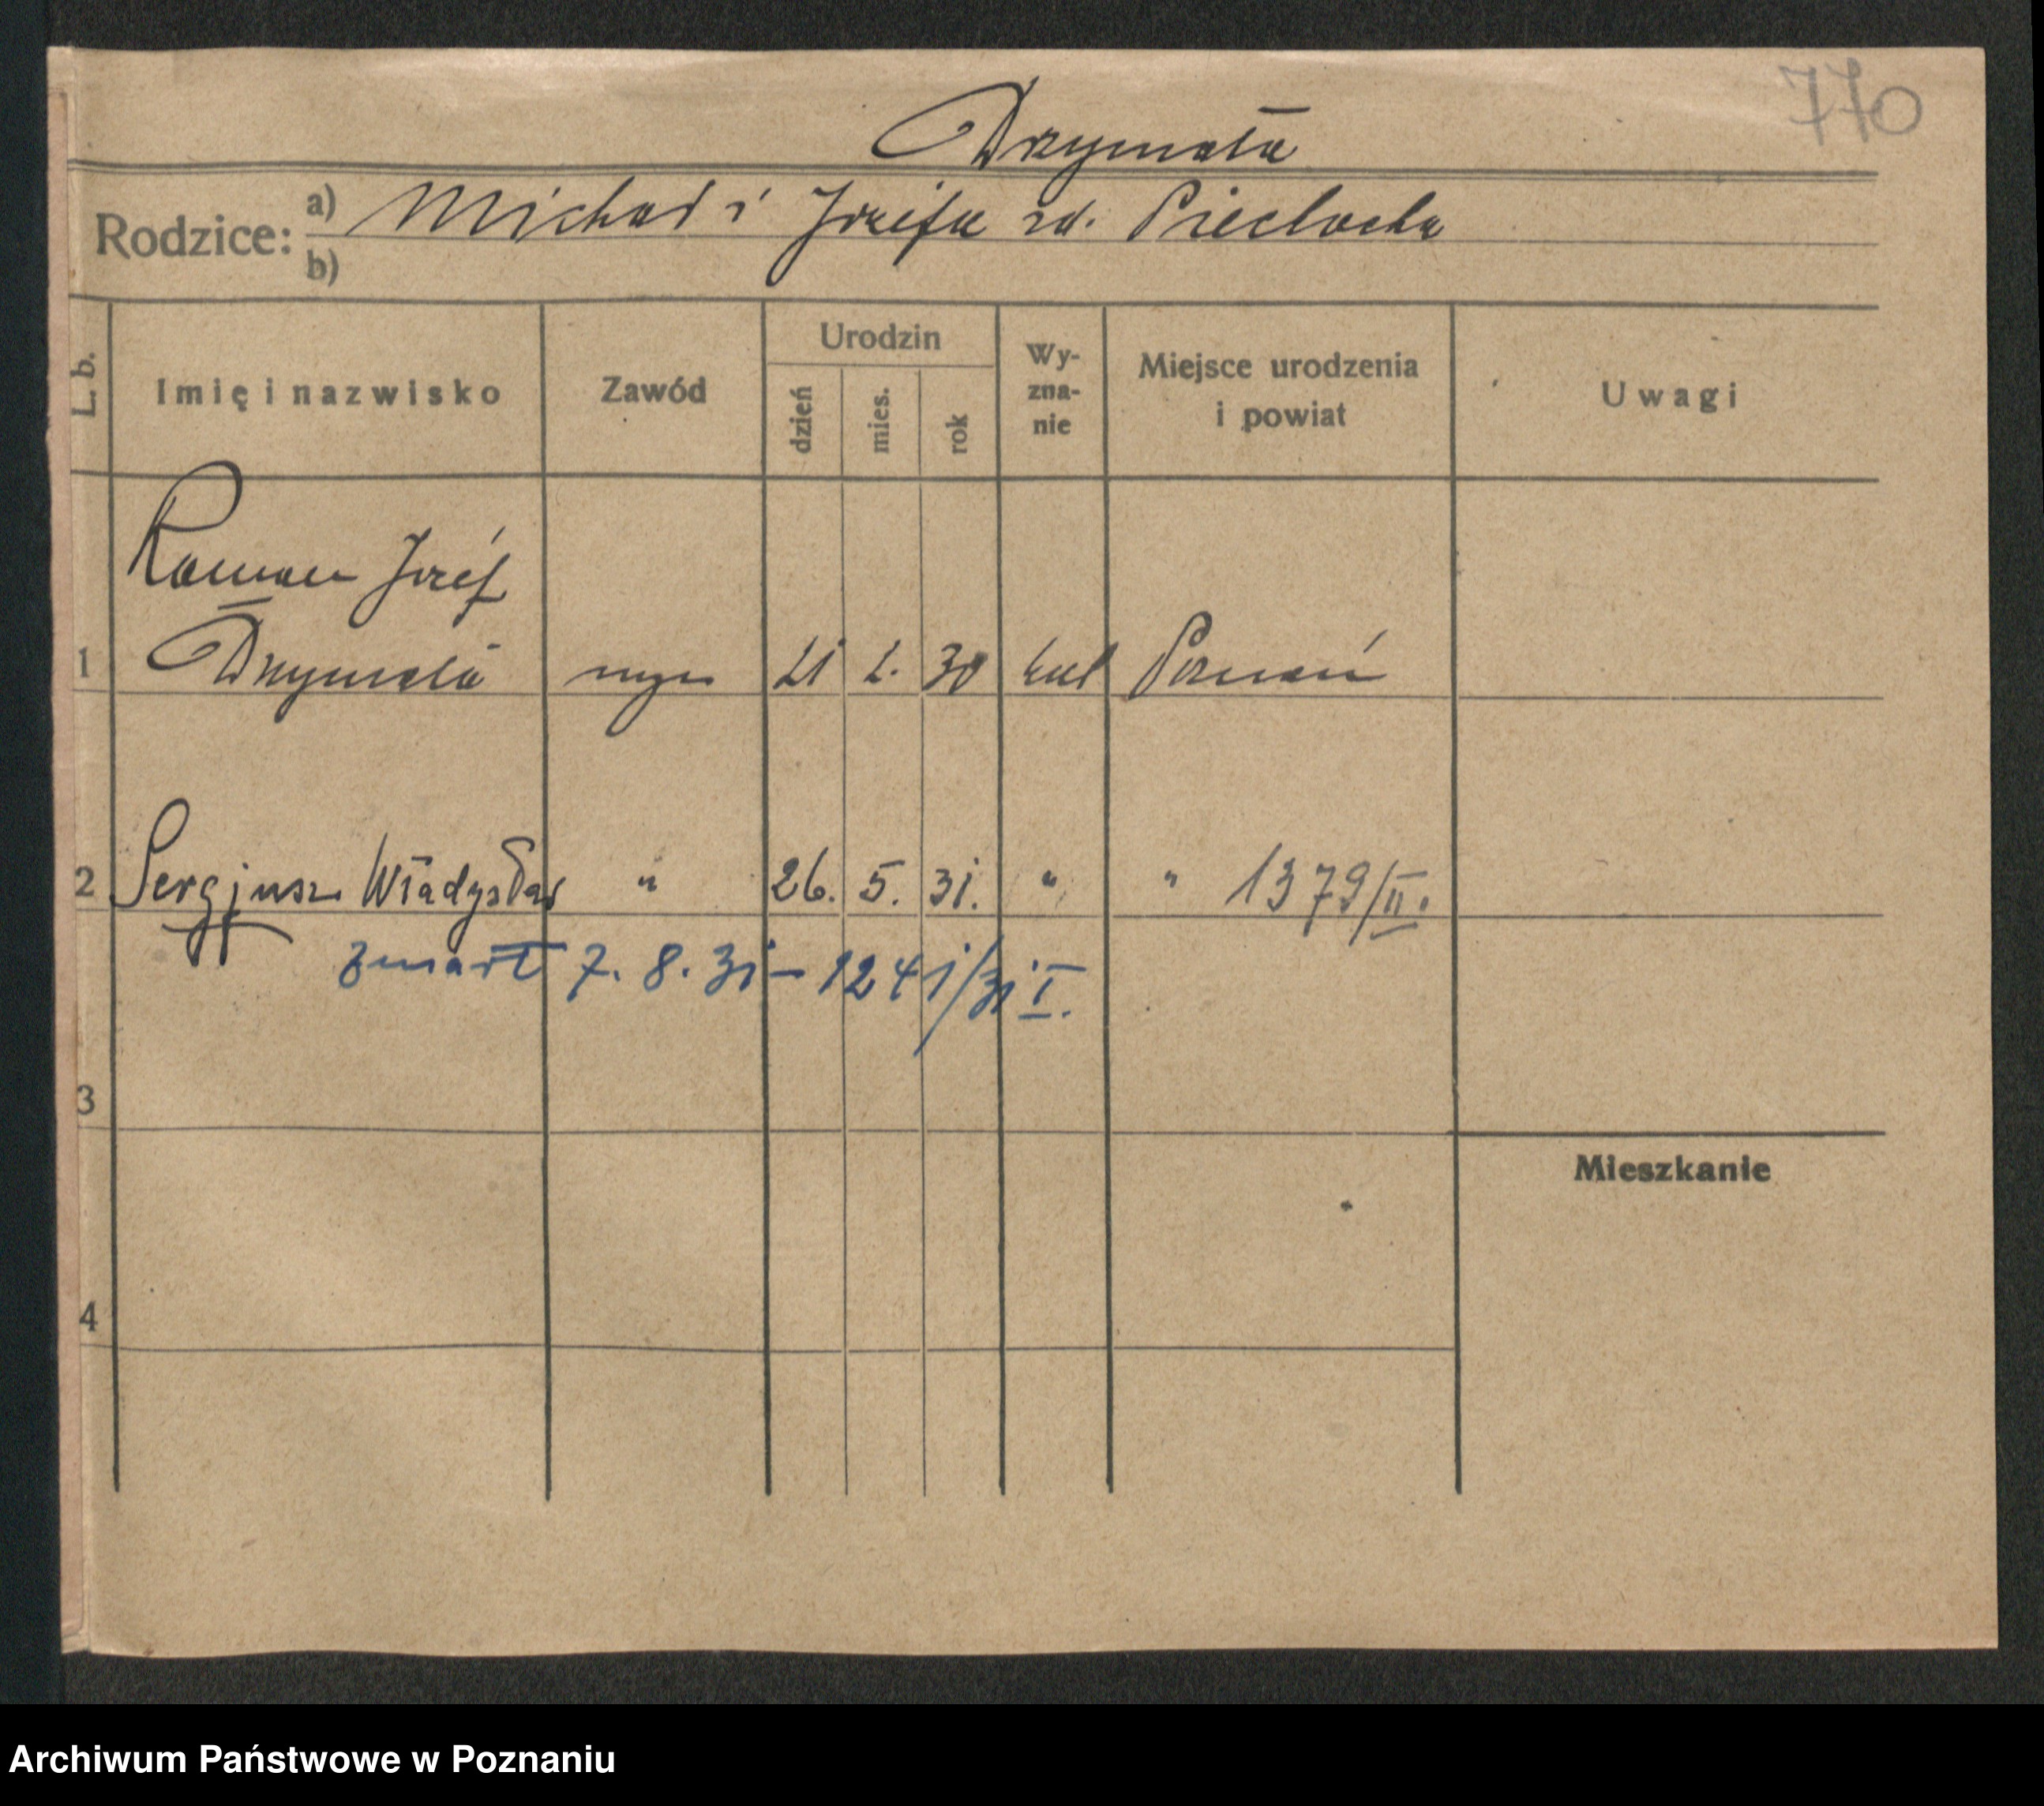 770
Drymała
Rodzice: a) Michał i Józefa zd. Pieclocha
b)
L. b. Imię i nazwisko Zawód Urodzin dzień mies. rok Wy-zna-nie Miejsce urodzenia i powiat Uwagi
Roman Józef
1 Drymała 21 2. 30 kat Poznań
2 Sergjusz Władysław " 26. 5. 31. " " 1379/II.
zmarł 7. 8. 31 – 1241/31 I.
3
Mieszkanie
4
Archiwum Państwowe w Poznaniu